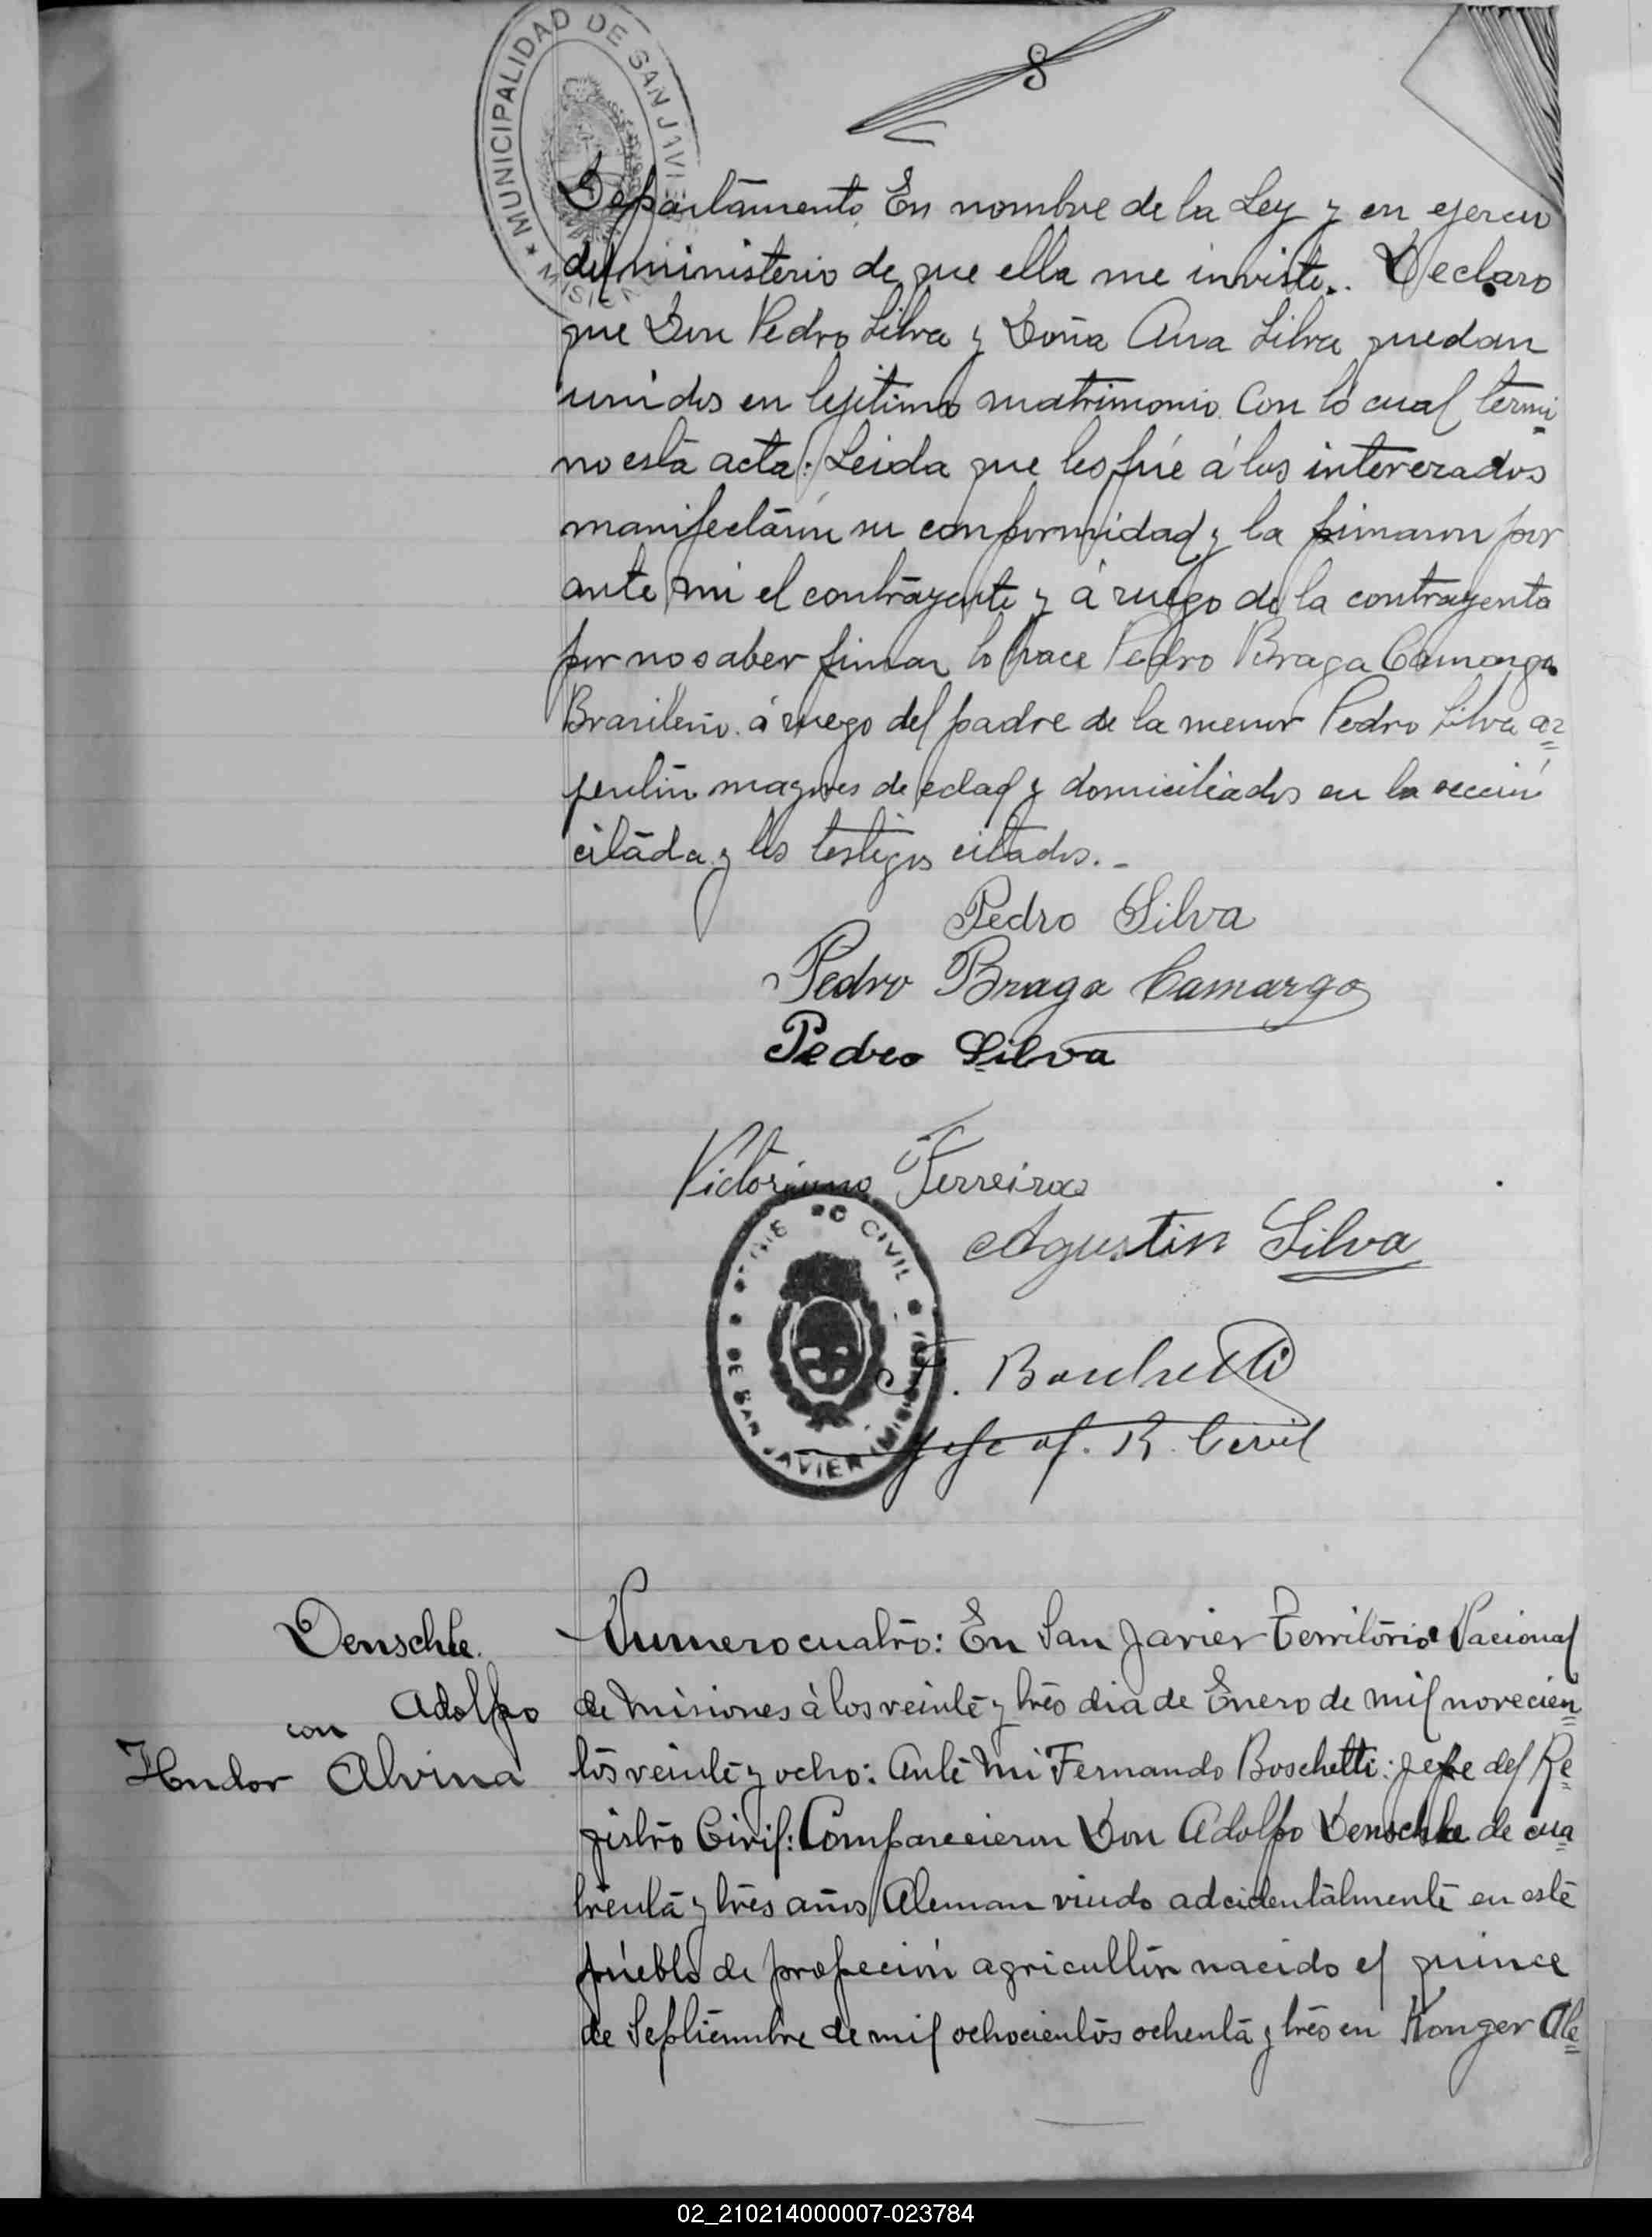 MUNICIPALIDAD DE SAN JAVIER
★ MISIONES
8
Departamento. En nombre de la Ley y en ejercicio
del ministerio de que ella me inviste.. Declaro
que Don Pedro Silva y Doña Ana Silva quedan
unidos en lejitimo matrimonio. Con lo cual termi
no esta acta: Leida que les fúe á los interezados
manifestáron su conformidad y la firmaron por
ante mi el contrayente y á ruego de la contrayente
por no saber firmar lo hace Pedro Braga Camargo
Brasileño. á ruego del padre de la menor Pedro Silva ar=
jentin mayores de edad y domiciliados en la seccion
citada y los testigos citados. -
Pedro Silva
Pedro Braga Camargo
Pedro Silva
Victoriano Ferreira
Agustin Silva
REGISTRO CIVIL
DE SAN JAVIER (MISIONES)
F. Boschetti
Jefe of. R. Civil
Denschle.
Adolfo
con
Hendor Alvina
Numero cuatro: En San Javier Territorio Nacional
de Misiones á los veinte y tres dia de Enero de mil novecien=
tos veinte y ocho: Ante Mi Fernando Boschetti: Jefe del Re=
gistro Civil: Comparecieron Don Adolfo Denschle de cua=
trenta y tres años Aleman viudo adcidentalmente en este
púeblo de profecion agricultor nacido el quince
de Septiembre de mil ochocientos ochenta y tres en Konger Ale=
02_210214000007-023784